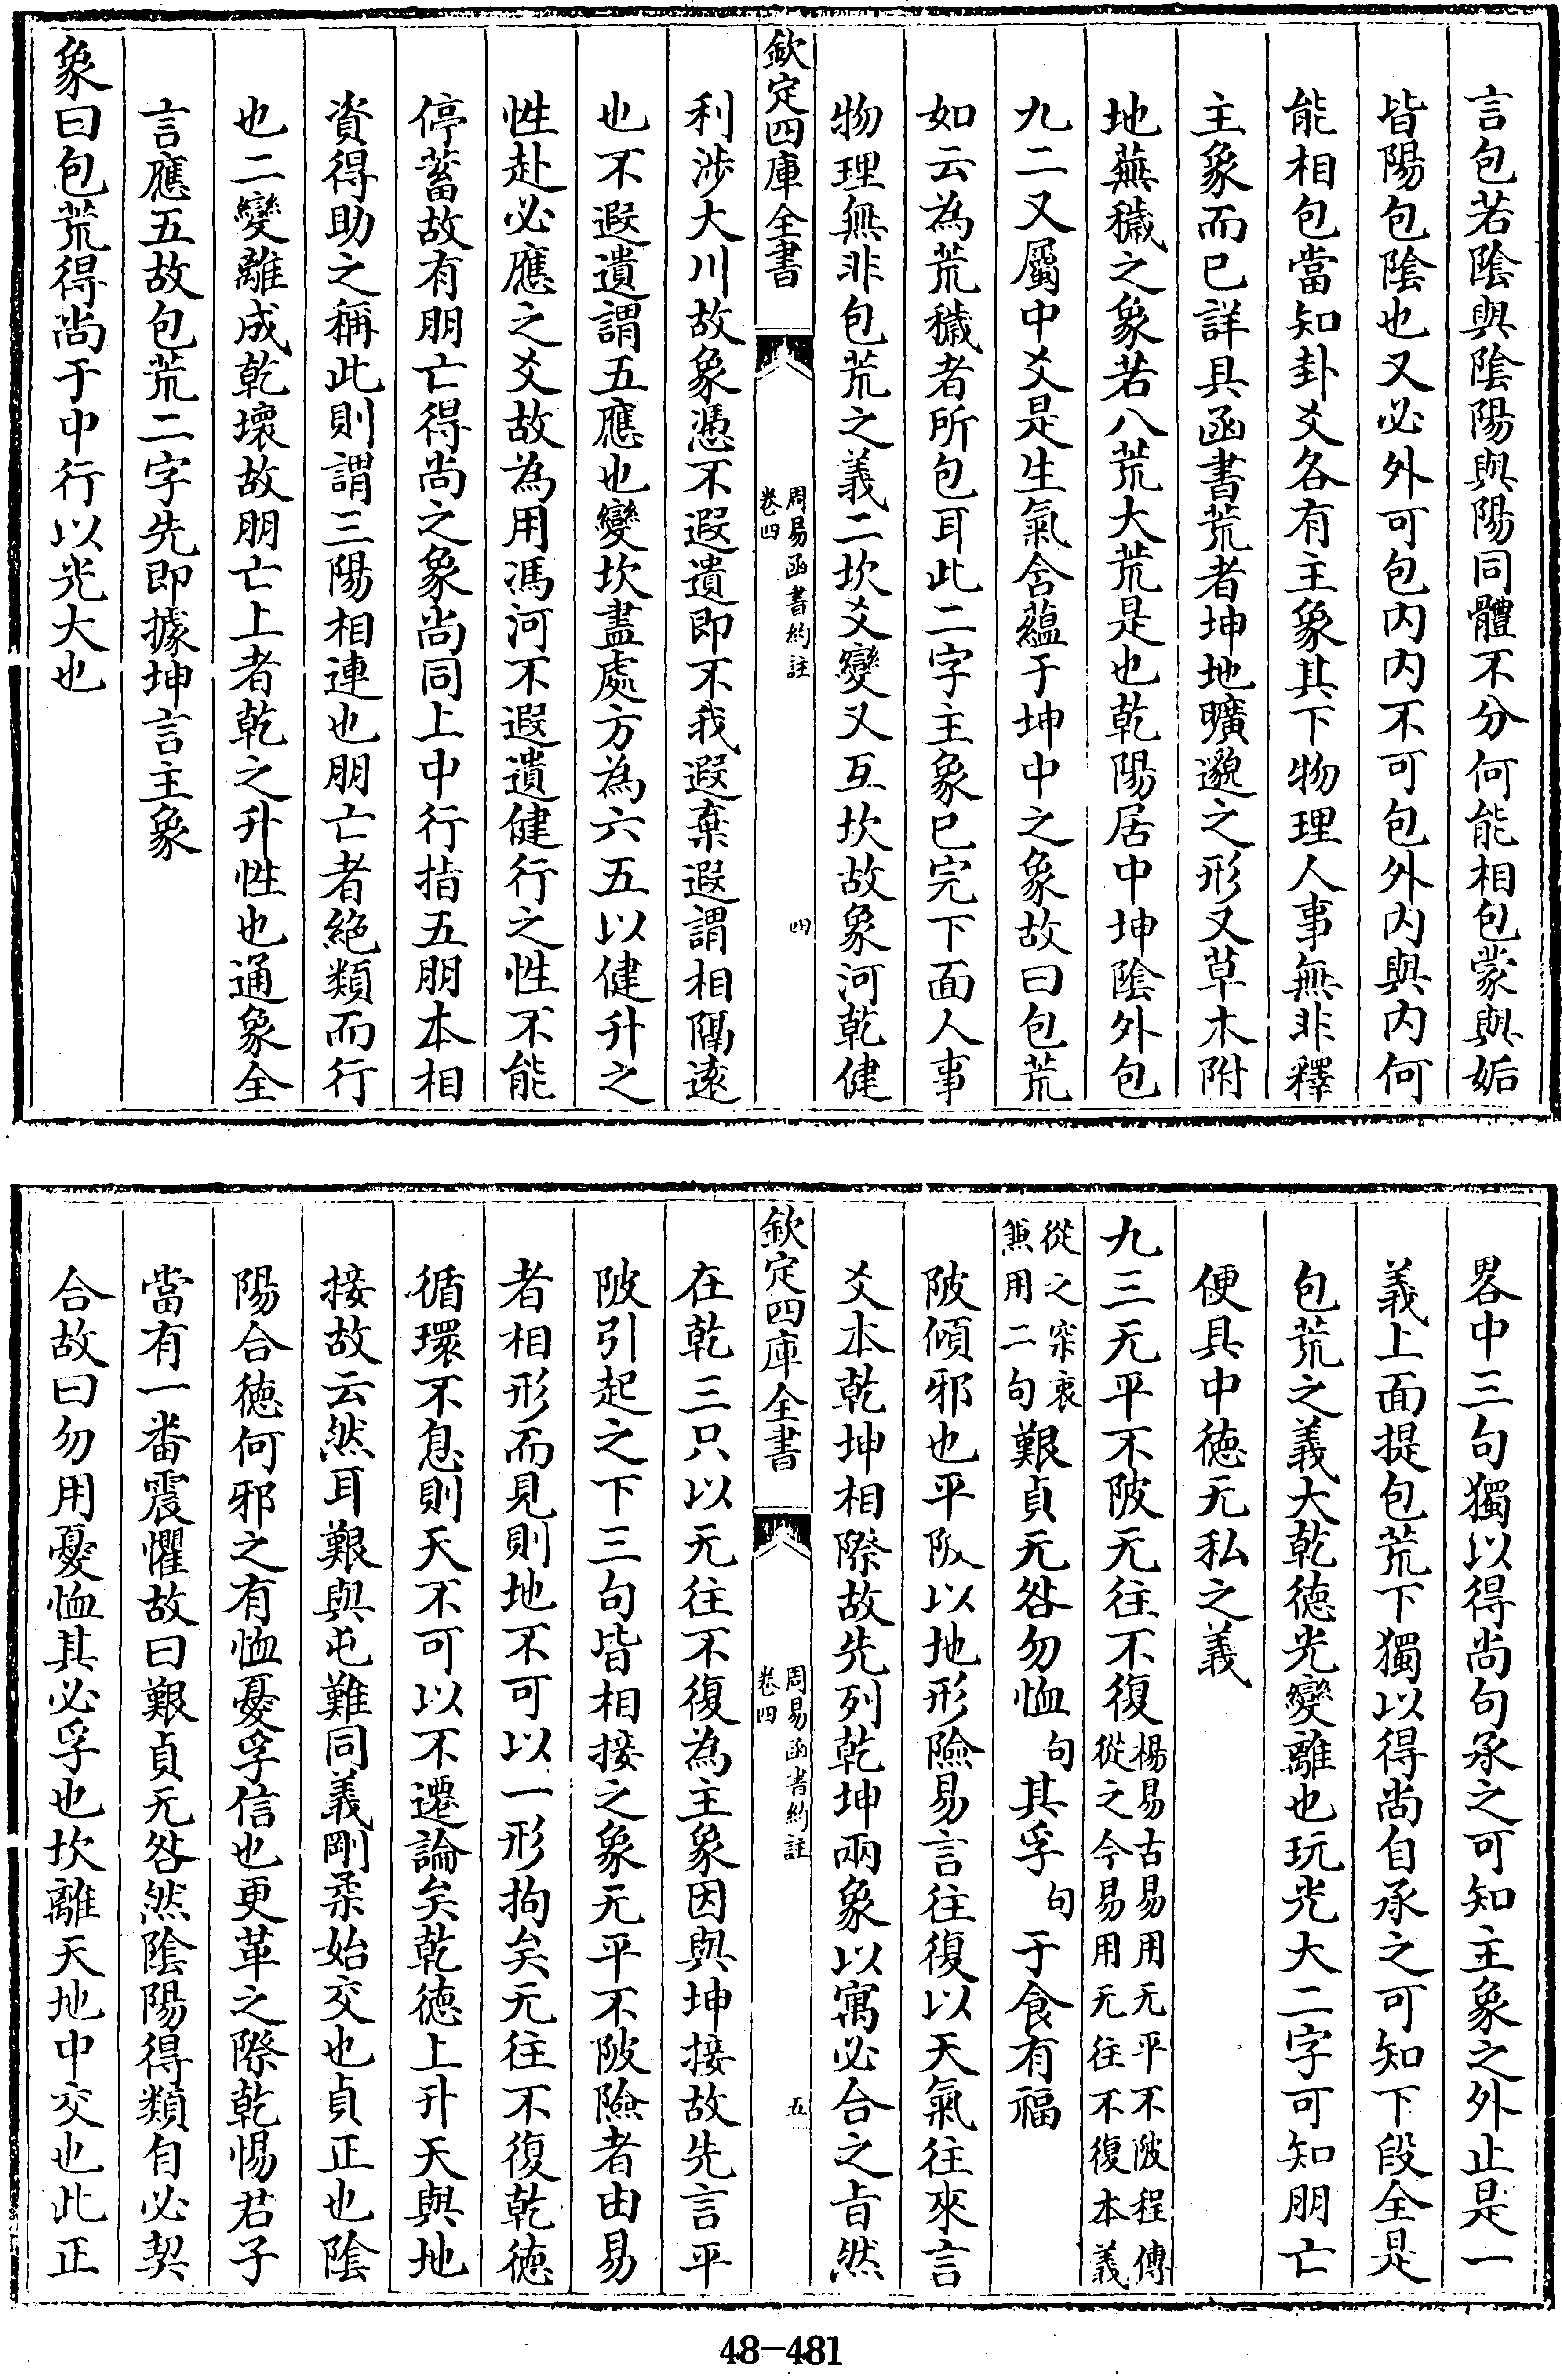 言包若陰與陰陽與陽同體不分何能相包蒙與姤
皆陽包陰也又必外可包内内不可包外内與内何
能相包當知卦爻各有主象其下物理人事無非釋
主象而已詳具函書荒者坤地曠邈之形又草木附
地蕪穢之象若八荒大荒是也乾陽居中坤陰外包
九二又屬中爻是生氣含蘊于坤中之象故曰包荒
如云為荒穢者所包耳此二字主象已完下面人事
物理無非包荒之義二坎爻變又互坎故象河乾健
欽定四庫全書
周易函書約註
卷四
四
利涉大川故象憑不遐遺即不我遐棄遐謂相隔遠
也不遐遺謂五應也變坎盡處方為六五以健升之
性赴必應之爻故為用馮河不遐遺健行之性不能
停蓄故有朋亡得尚之象尚同上中行指五朋本相
資得助之稱此則謂三陽相連也朋亡者絕類而行
也二變離成乾壞故朋亡上者乾之升性也通象全
言應五故包荒二字先即據坤言主象
象曰包荒得尚于中行以光大也
畧中三句獨以得尚句承之可知主象之外止是一
義上面提包荒下獨以得尚自承之可知下段全是
包荒之義大乾德光變離也玩光大二字可知朋亡
便具中德无私之義
九三无平不陂无往不復楊易古易用无平不陂程傳
從之今易用无往不復本義
從之案衷
兼用二句艱貞无咎勿恤句其孚句于食有福
陂傾邪也平陂以地形險易言往復以天氣往來言
爻本乾坤相際故先列乾坤兩象以寓必合之旨然
欽定四庫全書
周易函書約註
卷四
五
在乾三只以无往不復為主象因與坤接故先言平
陂引起之下三句皆相接之象无平不陂險者由易
者相形而見則地不可以一形拘矣无往不復乾德
循環不息則天不可以不遷論矣乾德上升天與地
接故云然耳艱與屯難同義剛柔始交也貞正也陰
陽合德何邪之有恤憂孚信也更革之際乾惕君子
當有一番震懼故曰艱貞无咎然陰陽得類自必契
合故曰勿用憂恤其必孚也坎離天地中交也此正
48-481